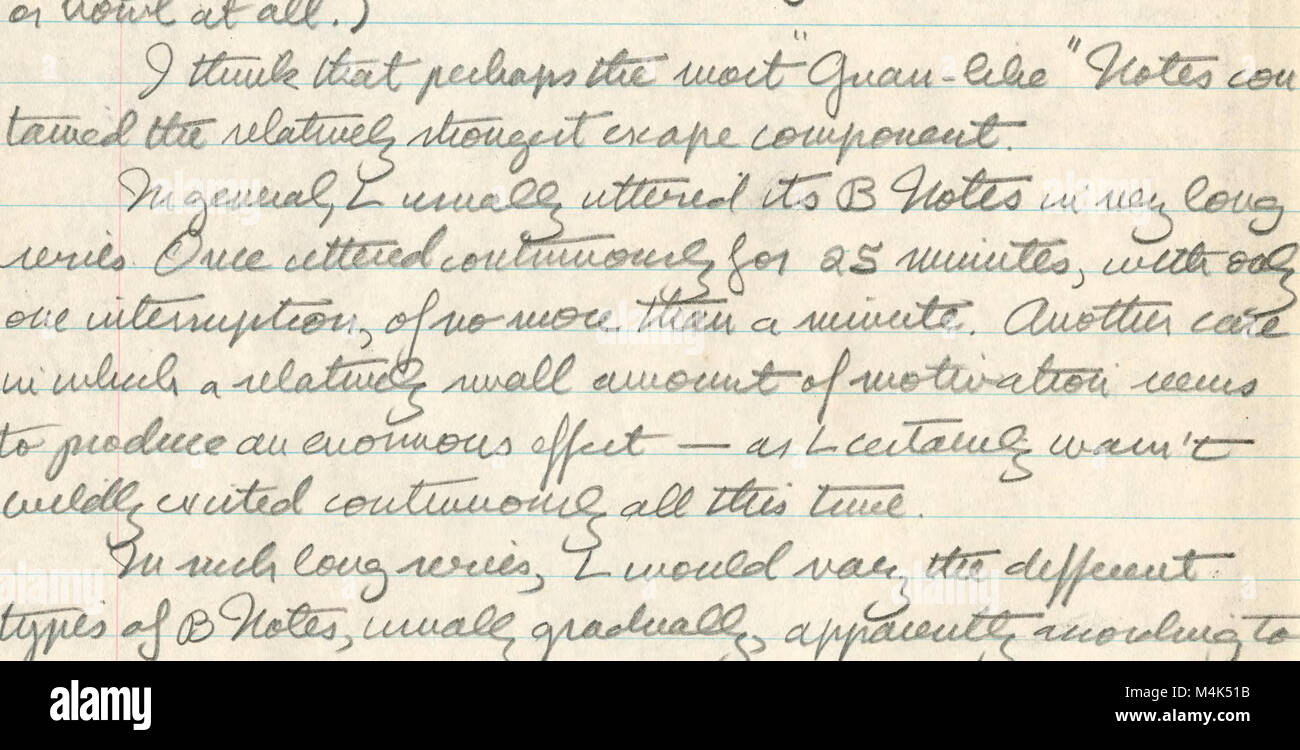 or howl at all.)
I think that perhaps the most "Guan-like" Notes con
tained the relatively strongest escape component.
In general, L usually uttered its B Notes in very long
series. Once uttered continuously for 25 minutes, with only
one interruption, of no more than a minute. Another case
in which a relatively small amount of motivation seems
to produce an enormous effect — as L certainly wasn't
wildly excited continuously all this time.
In such long series, L would vary the different
types of B Notes, usually gradually, apparently according to
alamy
Image ID: M4K51B
www.alamy.com